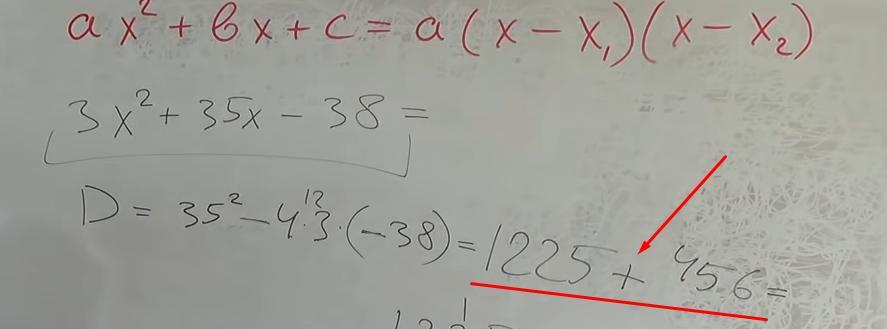 ax² + bx + c = a(x − x₁)(x − x₂)
3x² + 35x − 38 =
D = 35² − 4·3·(−38) = 1225 + 456 =
12